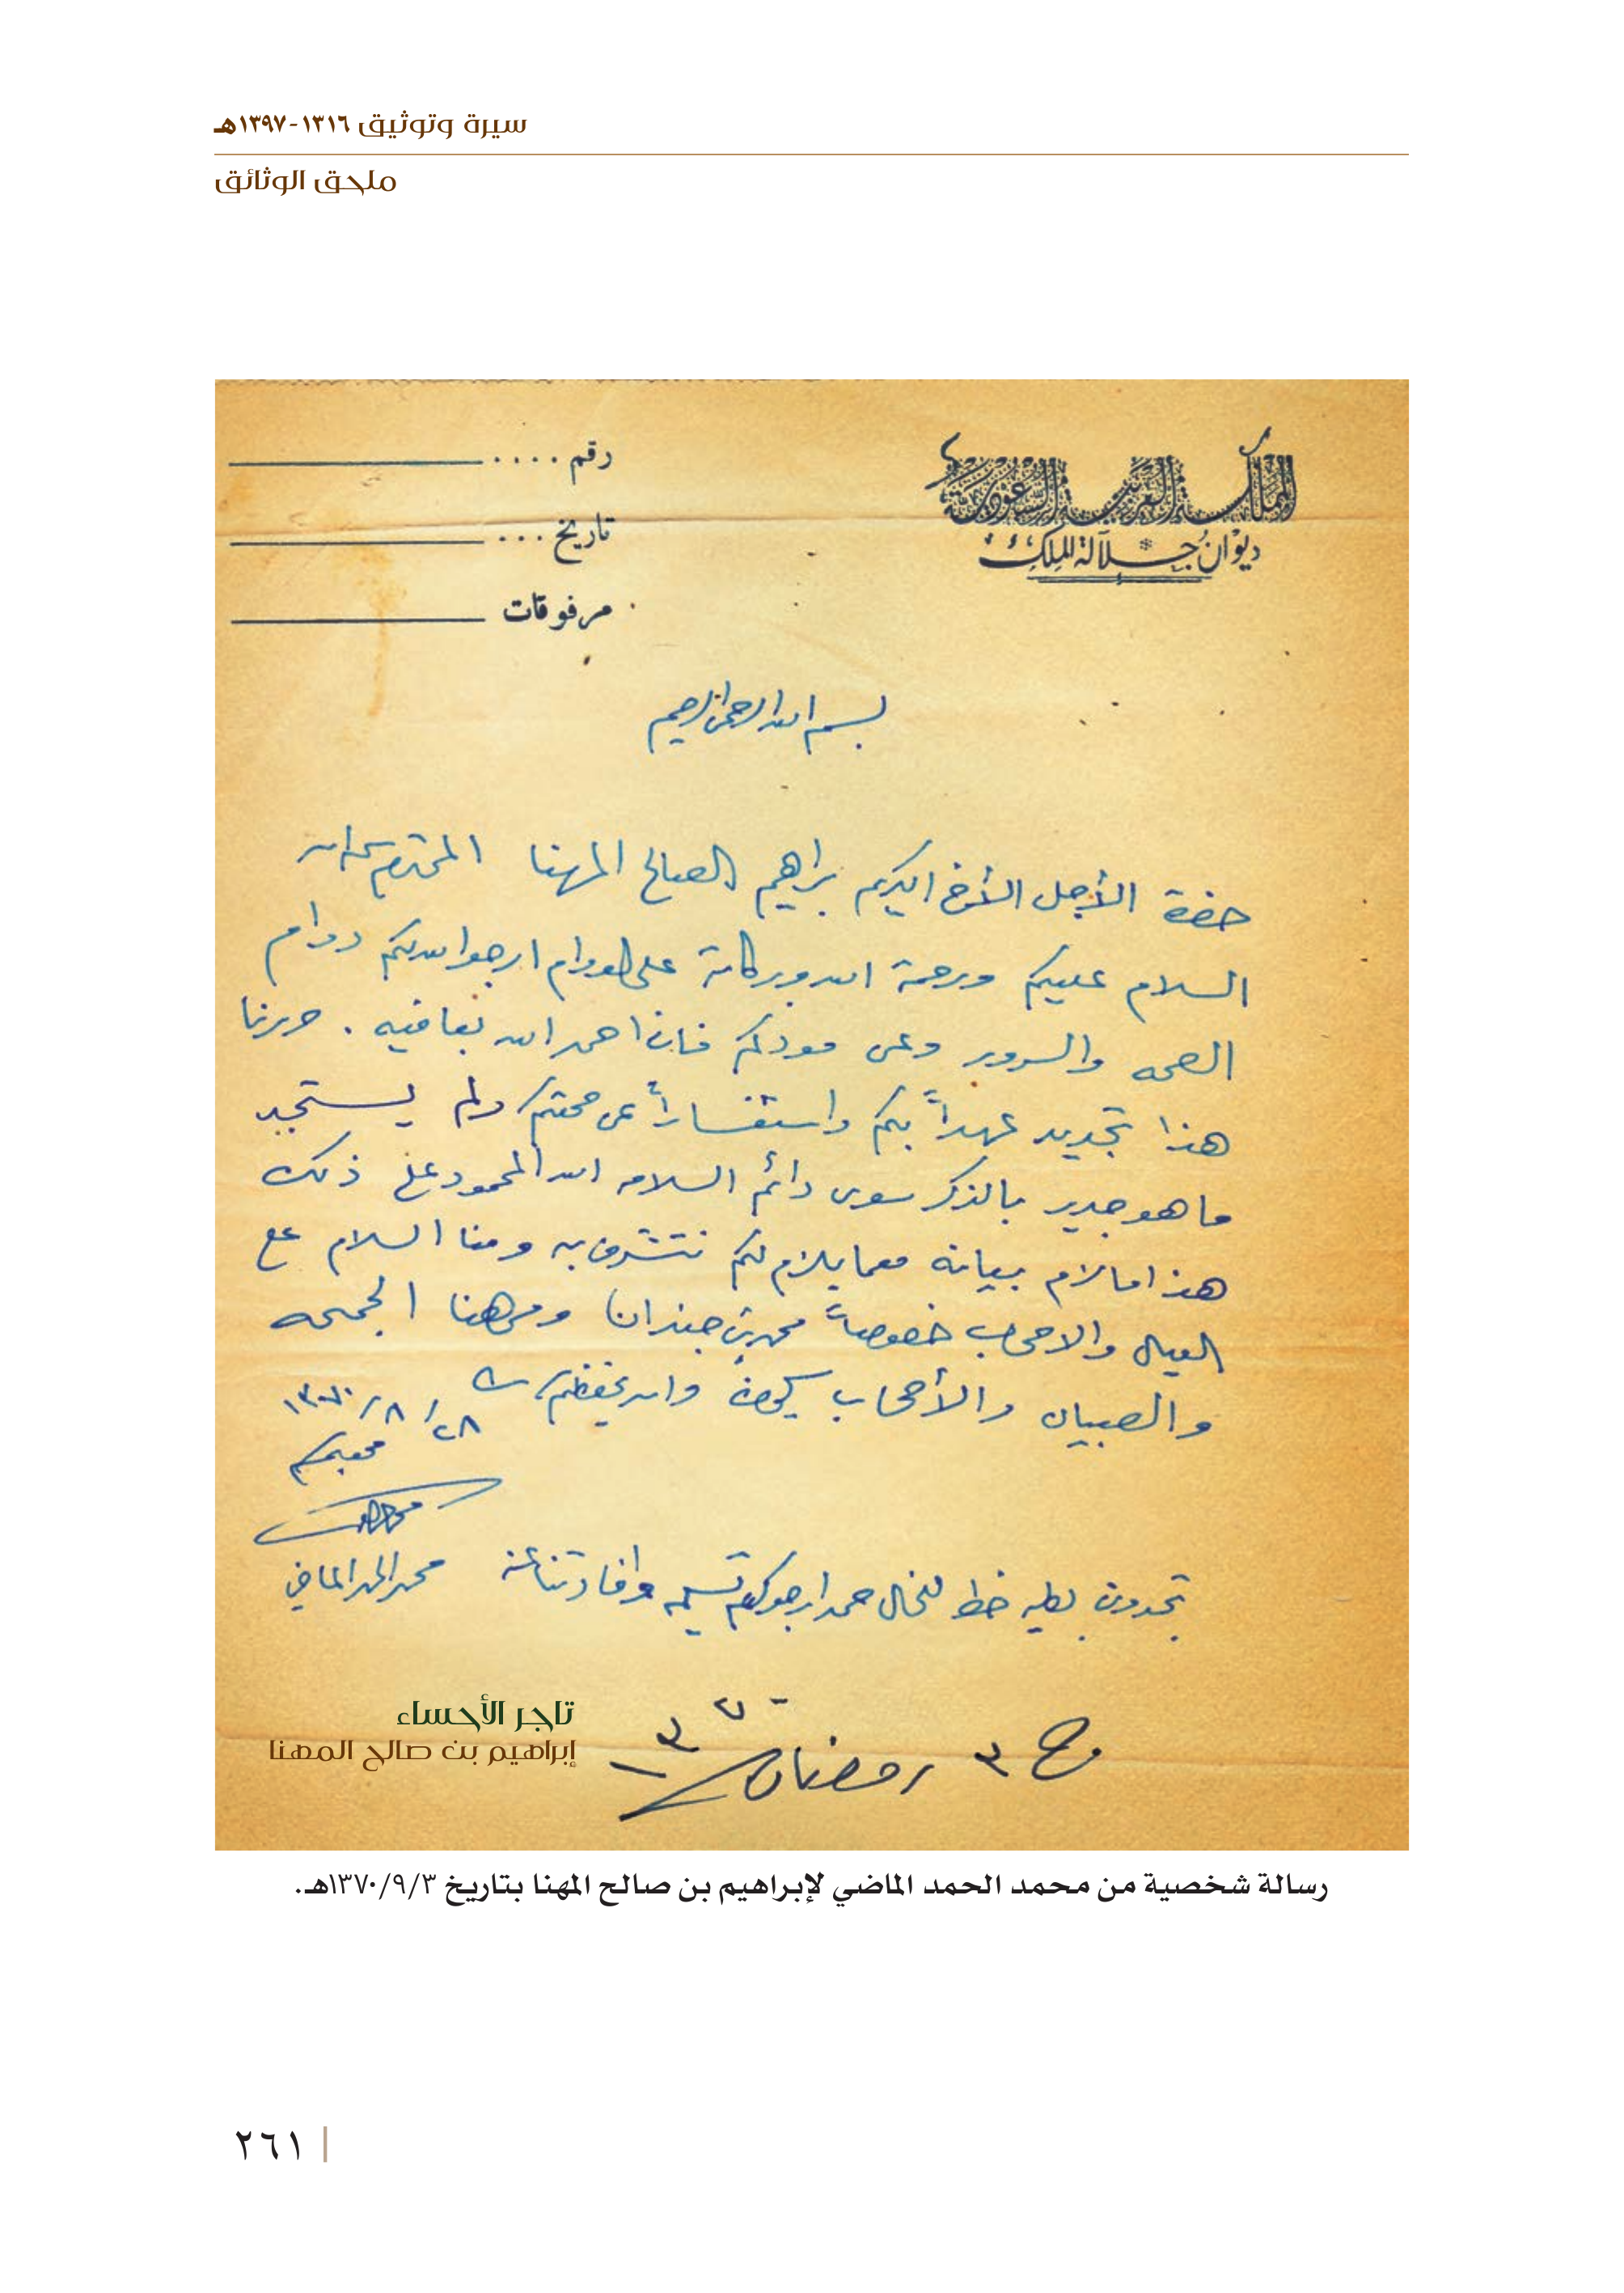 سيرة وتوثيق ١٣١٦-١٣٩٧هـ
ملحق الوثائق
المملكة العربية السعودية
ديوان جلالة الملك
رقم ....
تاريخ ...
مرفوقات
بسم الله الرحمن الرحيم
حضرة الأجل الأخ الكريم براهيم الصالح المهنا المحترم
السلام عليكم ورحمة الله وبركاته على الدوام ارجوا لله لكم دوام
الصحه والسرور وعن مودكم فاننا احمد الله بعافيه . حررنا
هذا تجديد عهداً بكم واستفساراً عن صحتكم ولم يستجد
ما هو جدير بالذكر سوى دائم السلامه الله المحمود على ذلك
هذا مالزم بيانه مهما يلزم لكم نتشرف به ومنا السلام على
العيال والاصحاب خصوصاً محمد بن جندان ومن هنا الجميعه
والصبيان والأصحاب والله يحفظكم
٢٨/٨/١٣٧٠
محبكم
محمد الحمد الماضي
تجدون بطيه خط للخال حمد ارجوكم تسليمه وافادتنا عنه
٣ رمضان ١٣٧٠
تاجر الأحساء
إبراهيم بن صالح المهنا
رسالة شخصية من محمد الحمد الماضي لإبراهيم بن صالح المهنا بتاريخ ١٣٧٠/٩/٣هـ.
٢٦١